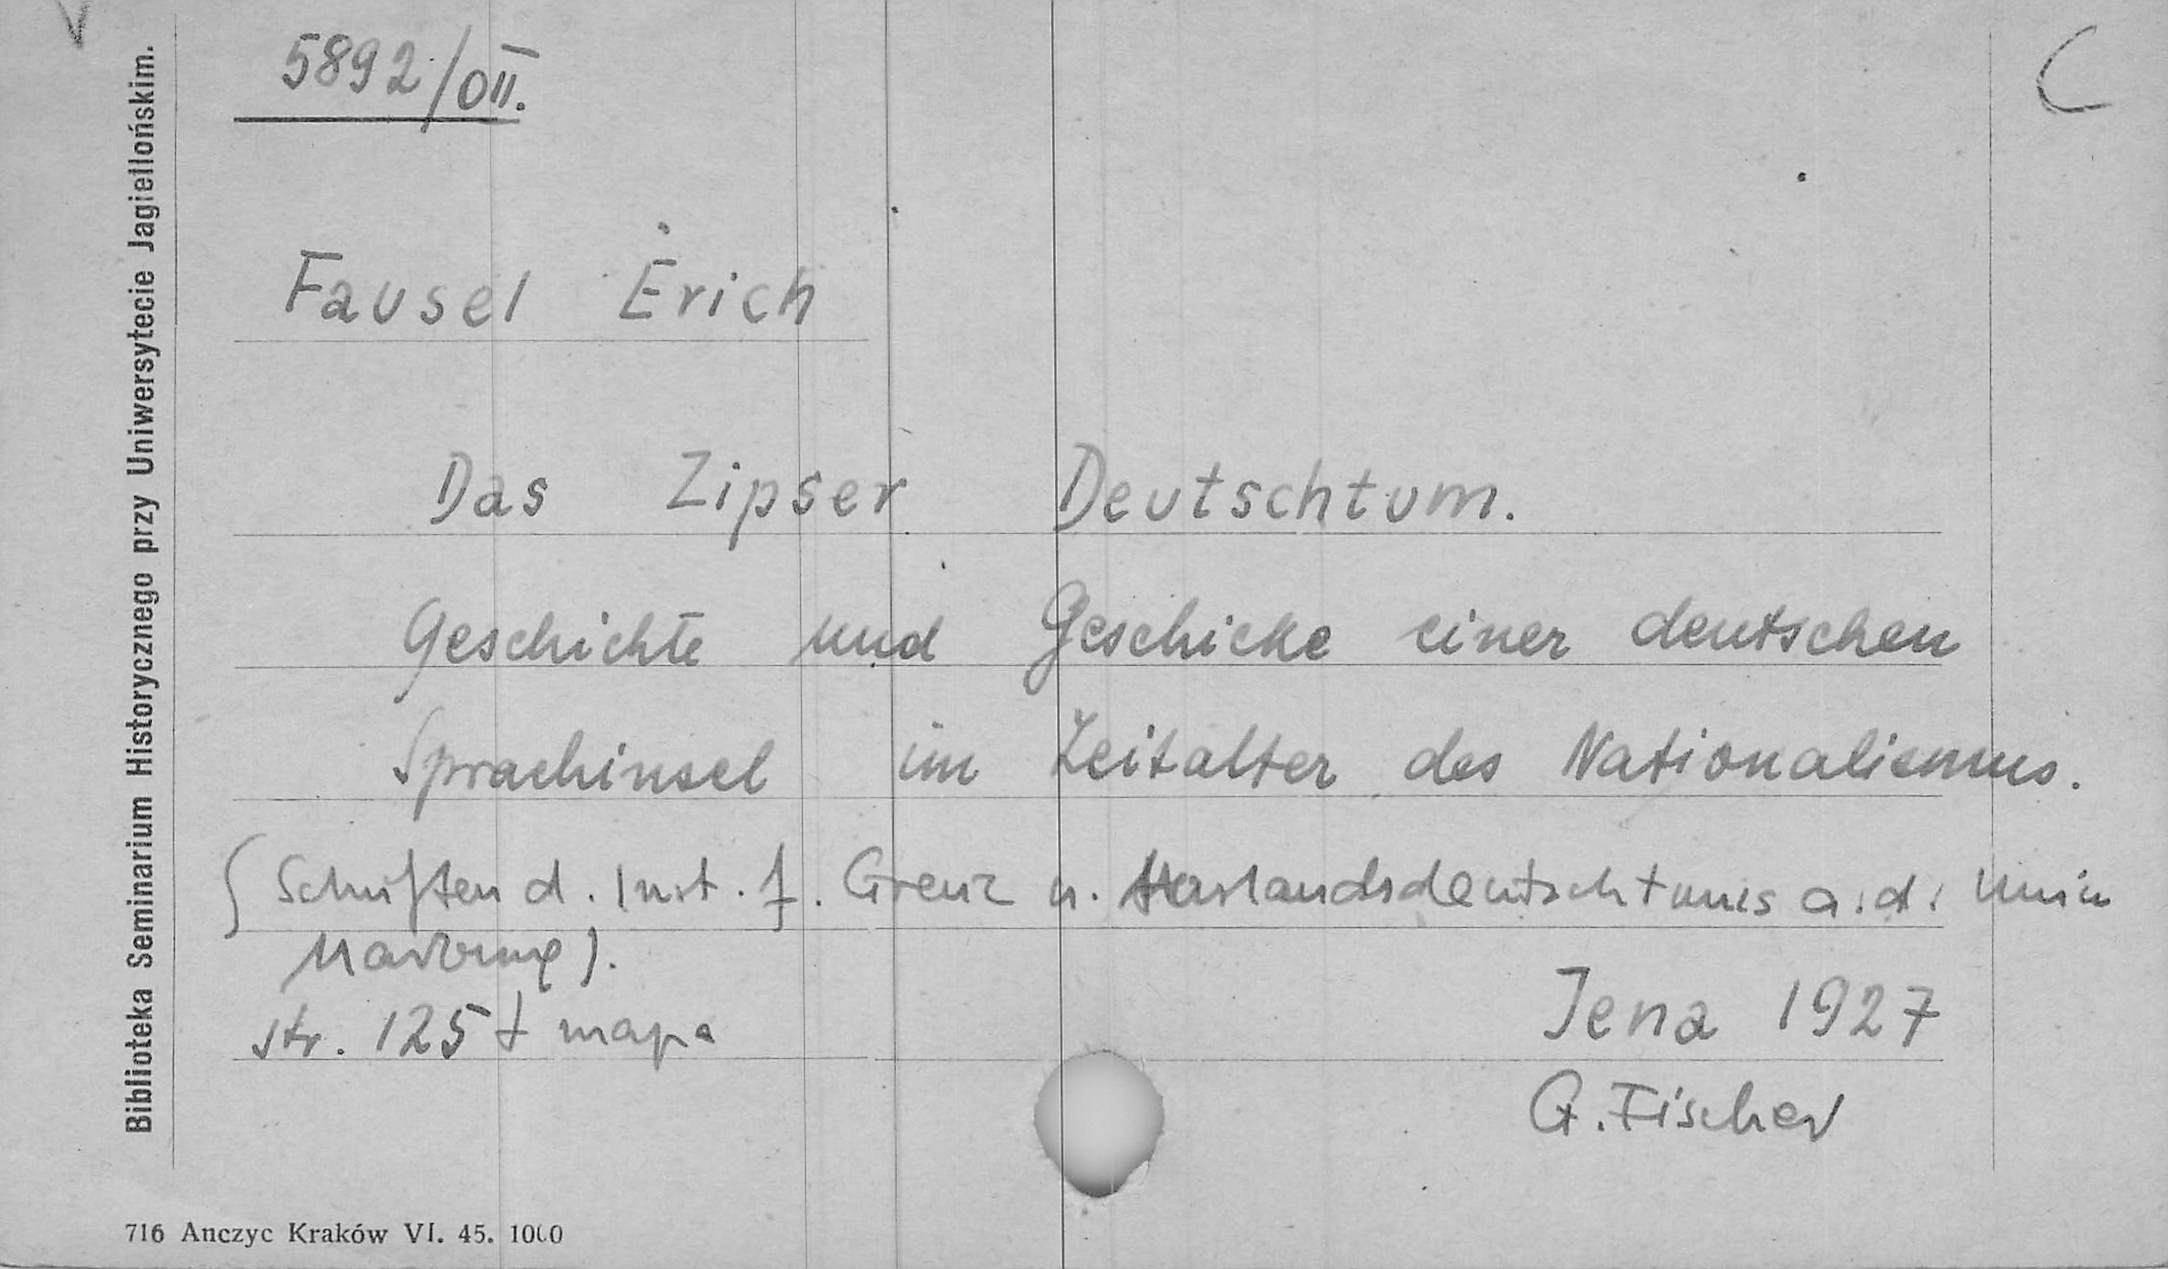 V
C
5892/OII.
Fausel Erich
Das Zipser Deutschtum.
Geschichte und Geschicke einer deutschen
Sprachinsel im Zeitalter des Nationalismus.
(Schriften d. Inst. f. Grenz u. Auslandsdeutschtums a.d. Univ
Marburg).
str. 125 + mapa
Jena 1927
G. Fischer
Biblioteka Seminarium Historycznego przy Uniwersytecie Jagiellońskim.
716 Anczyc Kraków VI. 45. 1000